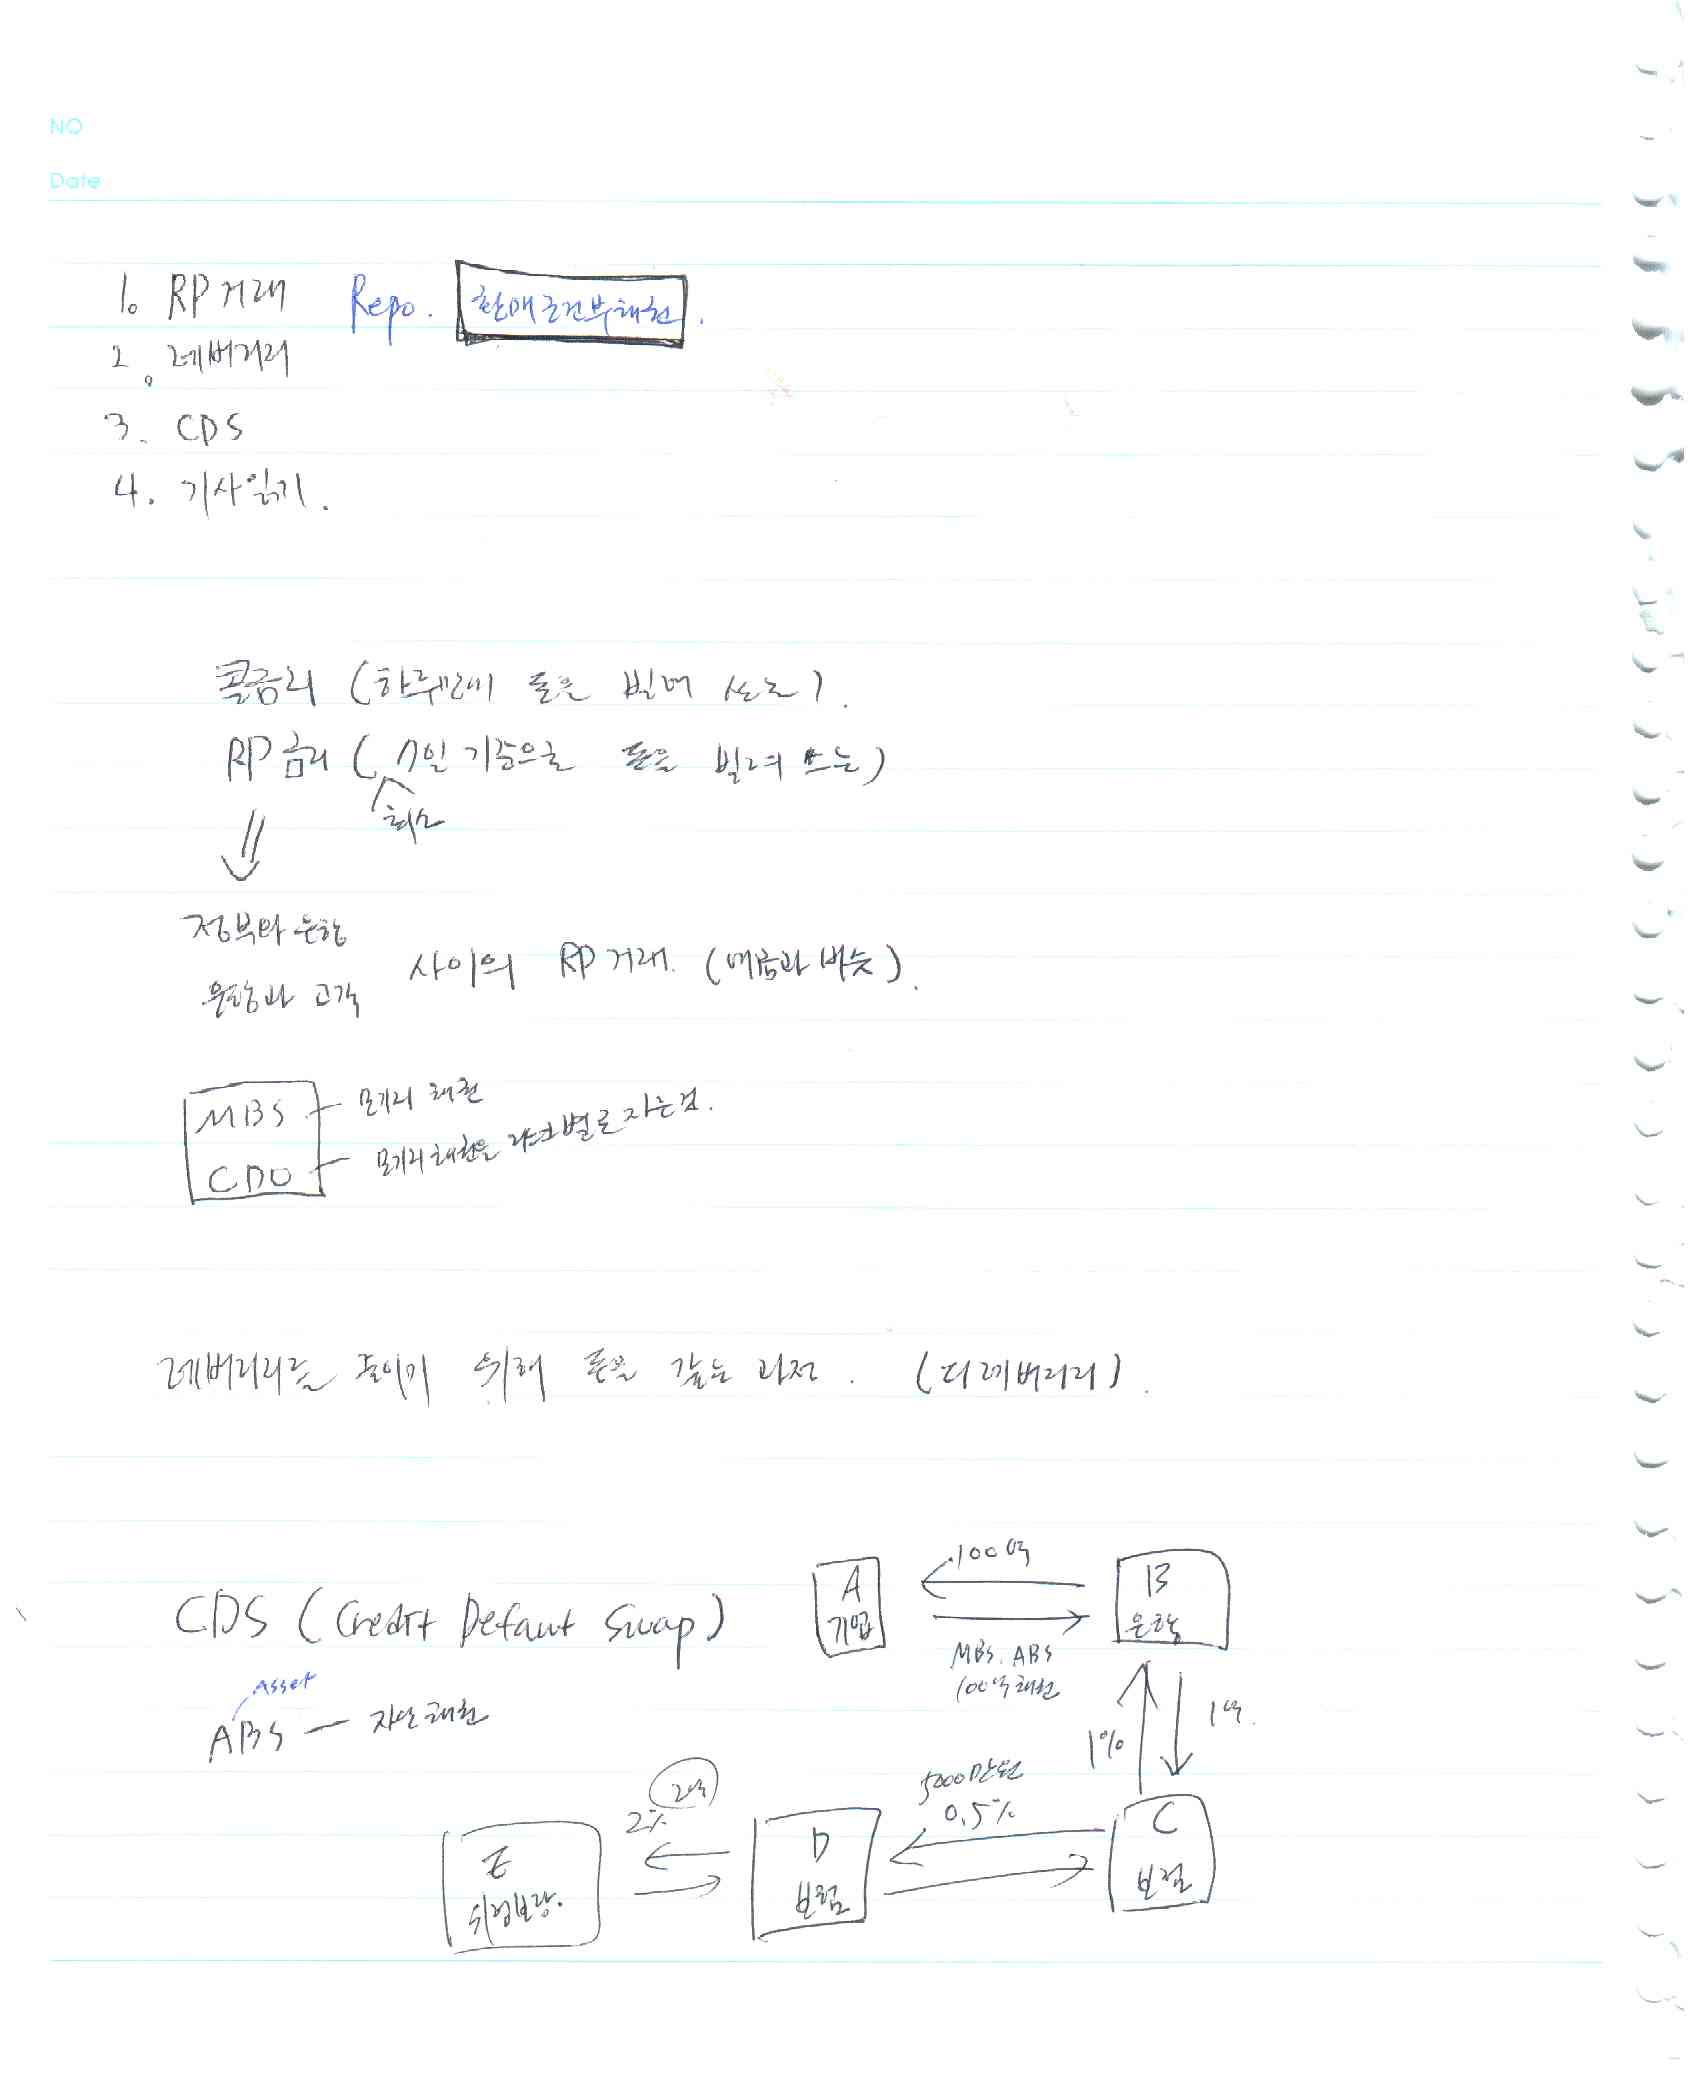 NO
Date
1. RP거래 Repo. 환매조건부채권.
2. 레버리지
3. CDS
4. 기사읽기.
콜금리 (하루만에 돈을 빌려 쓰는).
RP금리 (7일 기준으로 돈을 빌려 쓰는)
최소
정부와 은행
은행과 고객 사이의 RP거래. (예금과 비슷).
MBS - 모기지 채권
CDO - 모기지 채권을 리스크별로 자른것.
레버리지를 줄이기 위해 돈을 갚는 과정. (디레버리지).
CDS (Credit Default Swap)
Asset
ABS - 자산채권
A
기업
100억
B
은행
MBS. ABS
100억 채권
1%
1억.
5000만원
0.5%
C
보험
D
보험
2억
2%
E